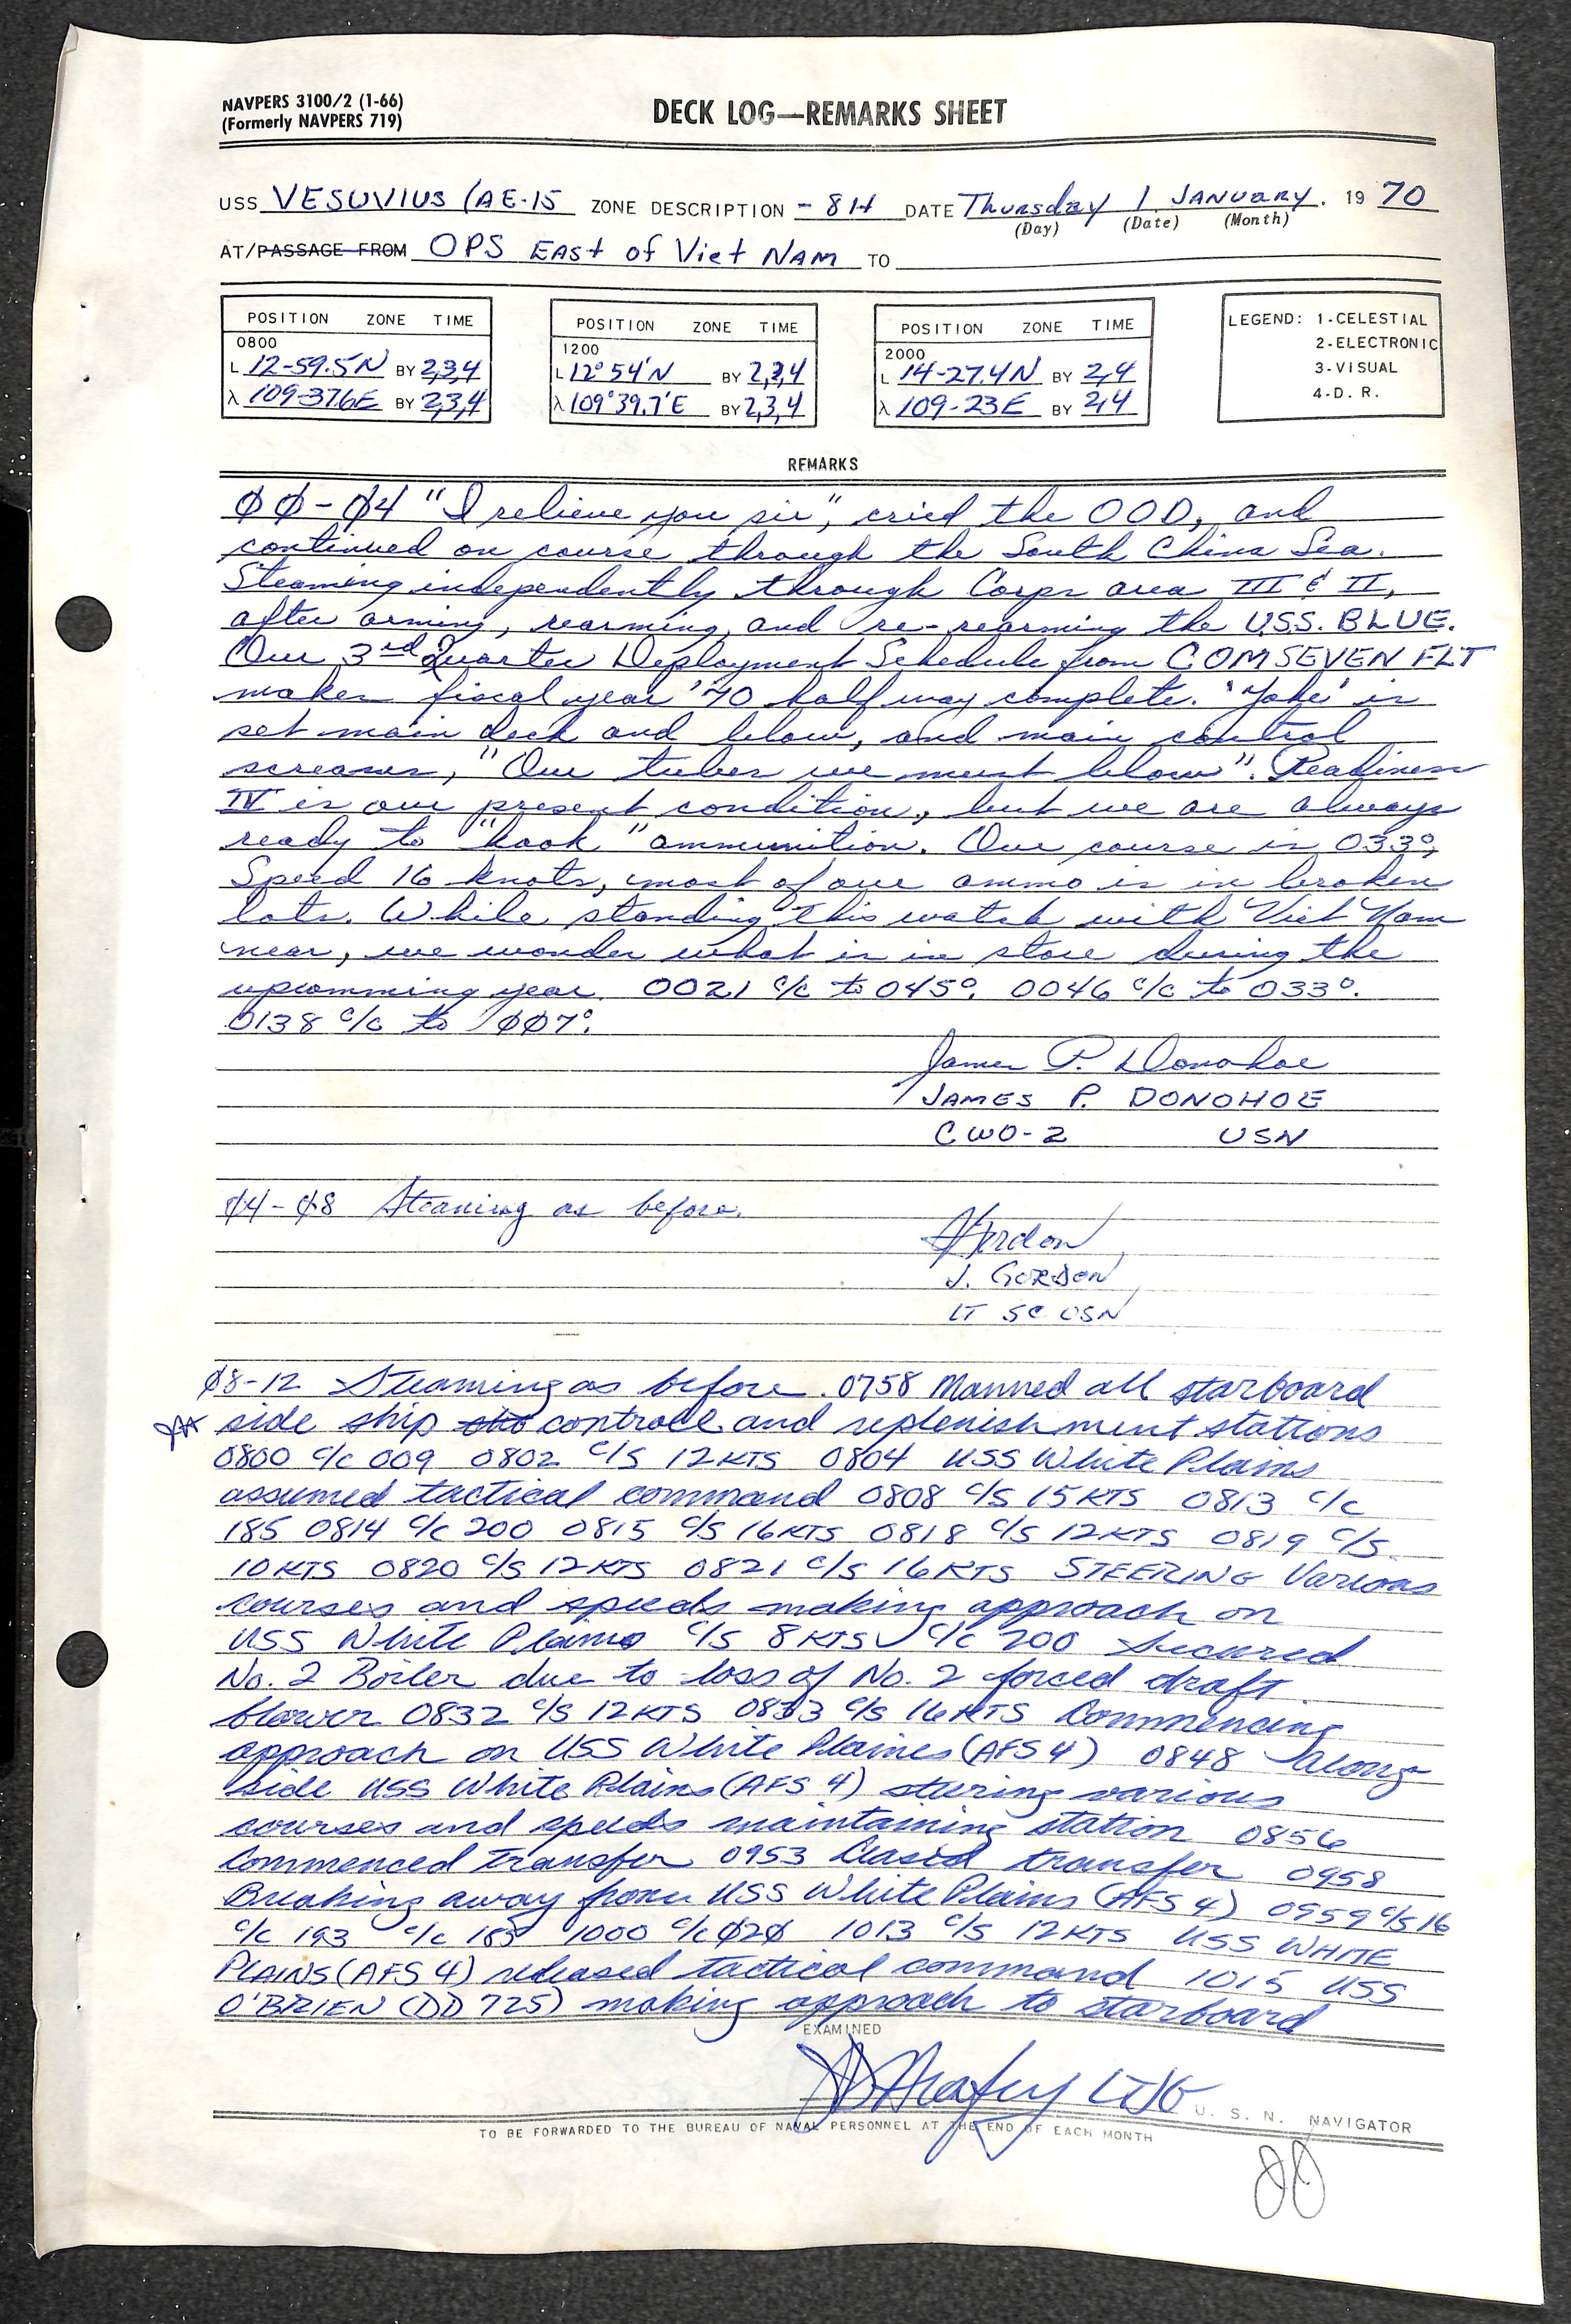 NAVPERS 3100/2 (1-66)
(Formerly NAVPERS 719)
DECK LOG—REMARKS SHEET
USS VESUVIUS (AE-15 ZONE DESCRIPTION - 8H DATE Thursday 1 JANUARY. 19 70
(Day) (Date) (Month)
AT/PASSAGE FROM OPS EAST of Viet NAM TO
POSITION ZONE TIME
0800
L 12-59.5N BY 2,3,4
λ 109-37.6E BY 2,3,4
POSITION ZONE TIME
1200
L 12° 54'N BY 2,3,4
λ 109°39.7'E BY 2,3,4
POSITION ZONE TIME
2000
L 14-27.4N BY 2,4
λ 109-23E BY 2,4
LEGEND: 1-CELESTIAL
2-ELECTRONIC
3-VISUAL
4-D. R.
REMARKS
00-04 "I relieve you sir", cried the OOD, and
continued on course through the South China Sea.
Steaming independently through Corps area III & II,
after arming, rearming, and re-rearming the U.S.S. BLUE.
Our 3rd Quarter Deployment Schedule from COMSEVENFLT
makes fiscal year '70 half way complete. 'Yoke' is
set main deck and below, and main control
screams, "Our tubes we must blow". Readiness
IV is our present condition, but we are always
ready to "hook" ammunition. Our course is 033°,
Speed 16 knots, most of our ammo is in broken
lots. While standing this watch with Viet Nam
near, we wonder what is in store during the
upcomming year. 0021 c/c to 045°. 0046 c/c to 033°.
0138 c/c to 007°.
James P. Donohoe
JAMES P. DONOHOE
CWO-2 USN
04-08 Steaming as before.
J Gordon
J. GORDON
LT SC USN
08-12 Steaming as before. 0758 Manned all starboard
side ship controll and replenishment stations
0800 c/c 009 0802 c/s 12KTS 0804 USS White Plains
assumed tactical command 0808 c/s 15KTS 0813 c/c
185 0814 c/c 200 0815 c/s 16KTS 0818 c/s 12KTS 0819 c/s.
10KTS 0820 c/s 12KTS 0821 c/s 16KTS STEERING Various
courses and speeds making approach on
USS White Plains c/s 8KTS c/c 200 Secured
No. 2 Boiler due to loss of No. 2 forced draft
blower 0832 c/s 12KTS 0833 c/s 16KTS Commencing
approach on USS White Plaines (AFS 4) 0848 Along-
side USS White Plains (AFS 4) steering various
courses and speeds maintaining station 0856
Commenced transfer 0953 Ceased transfer 0958
Breaking away from USS White Plains (AFS 4) 0959 c/s 16
c/c 193 c/c 185 1000 c/c 020 1013 c/s 12KTS USS WHITE
PLAINS (AFS 4) released tactical command 1015 USS
O'BRIEN (DD 725) making approach to starboard
EXAMINED
LTJG U. S. N. NAVIGATOR
TO BE FORWARDED TO THE BUREAU OF NAVAL PERSONNEL AT THE END OF EACH MONTH